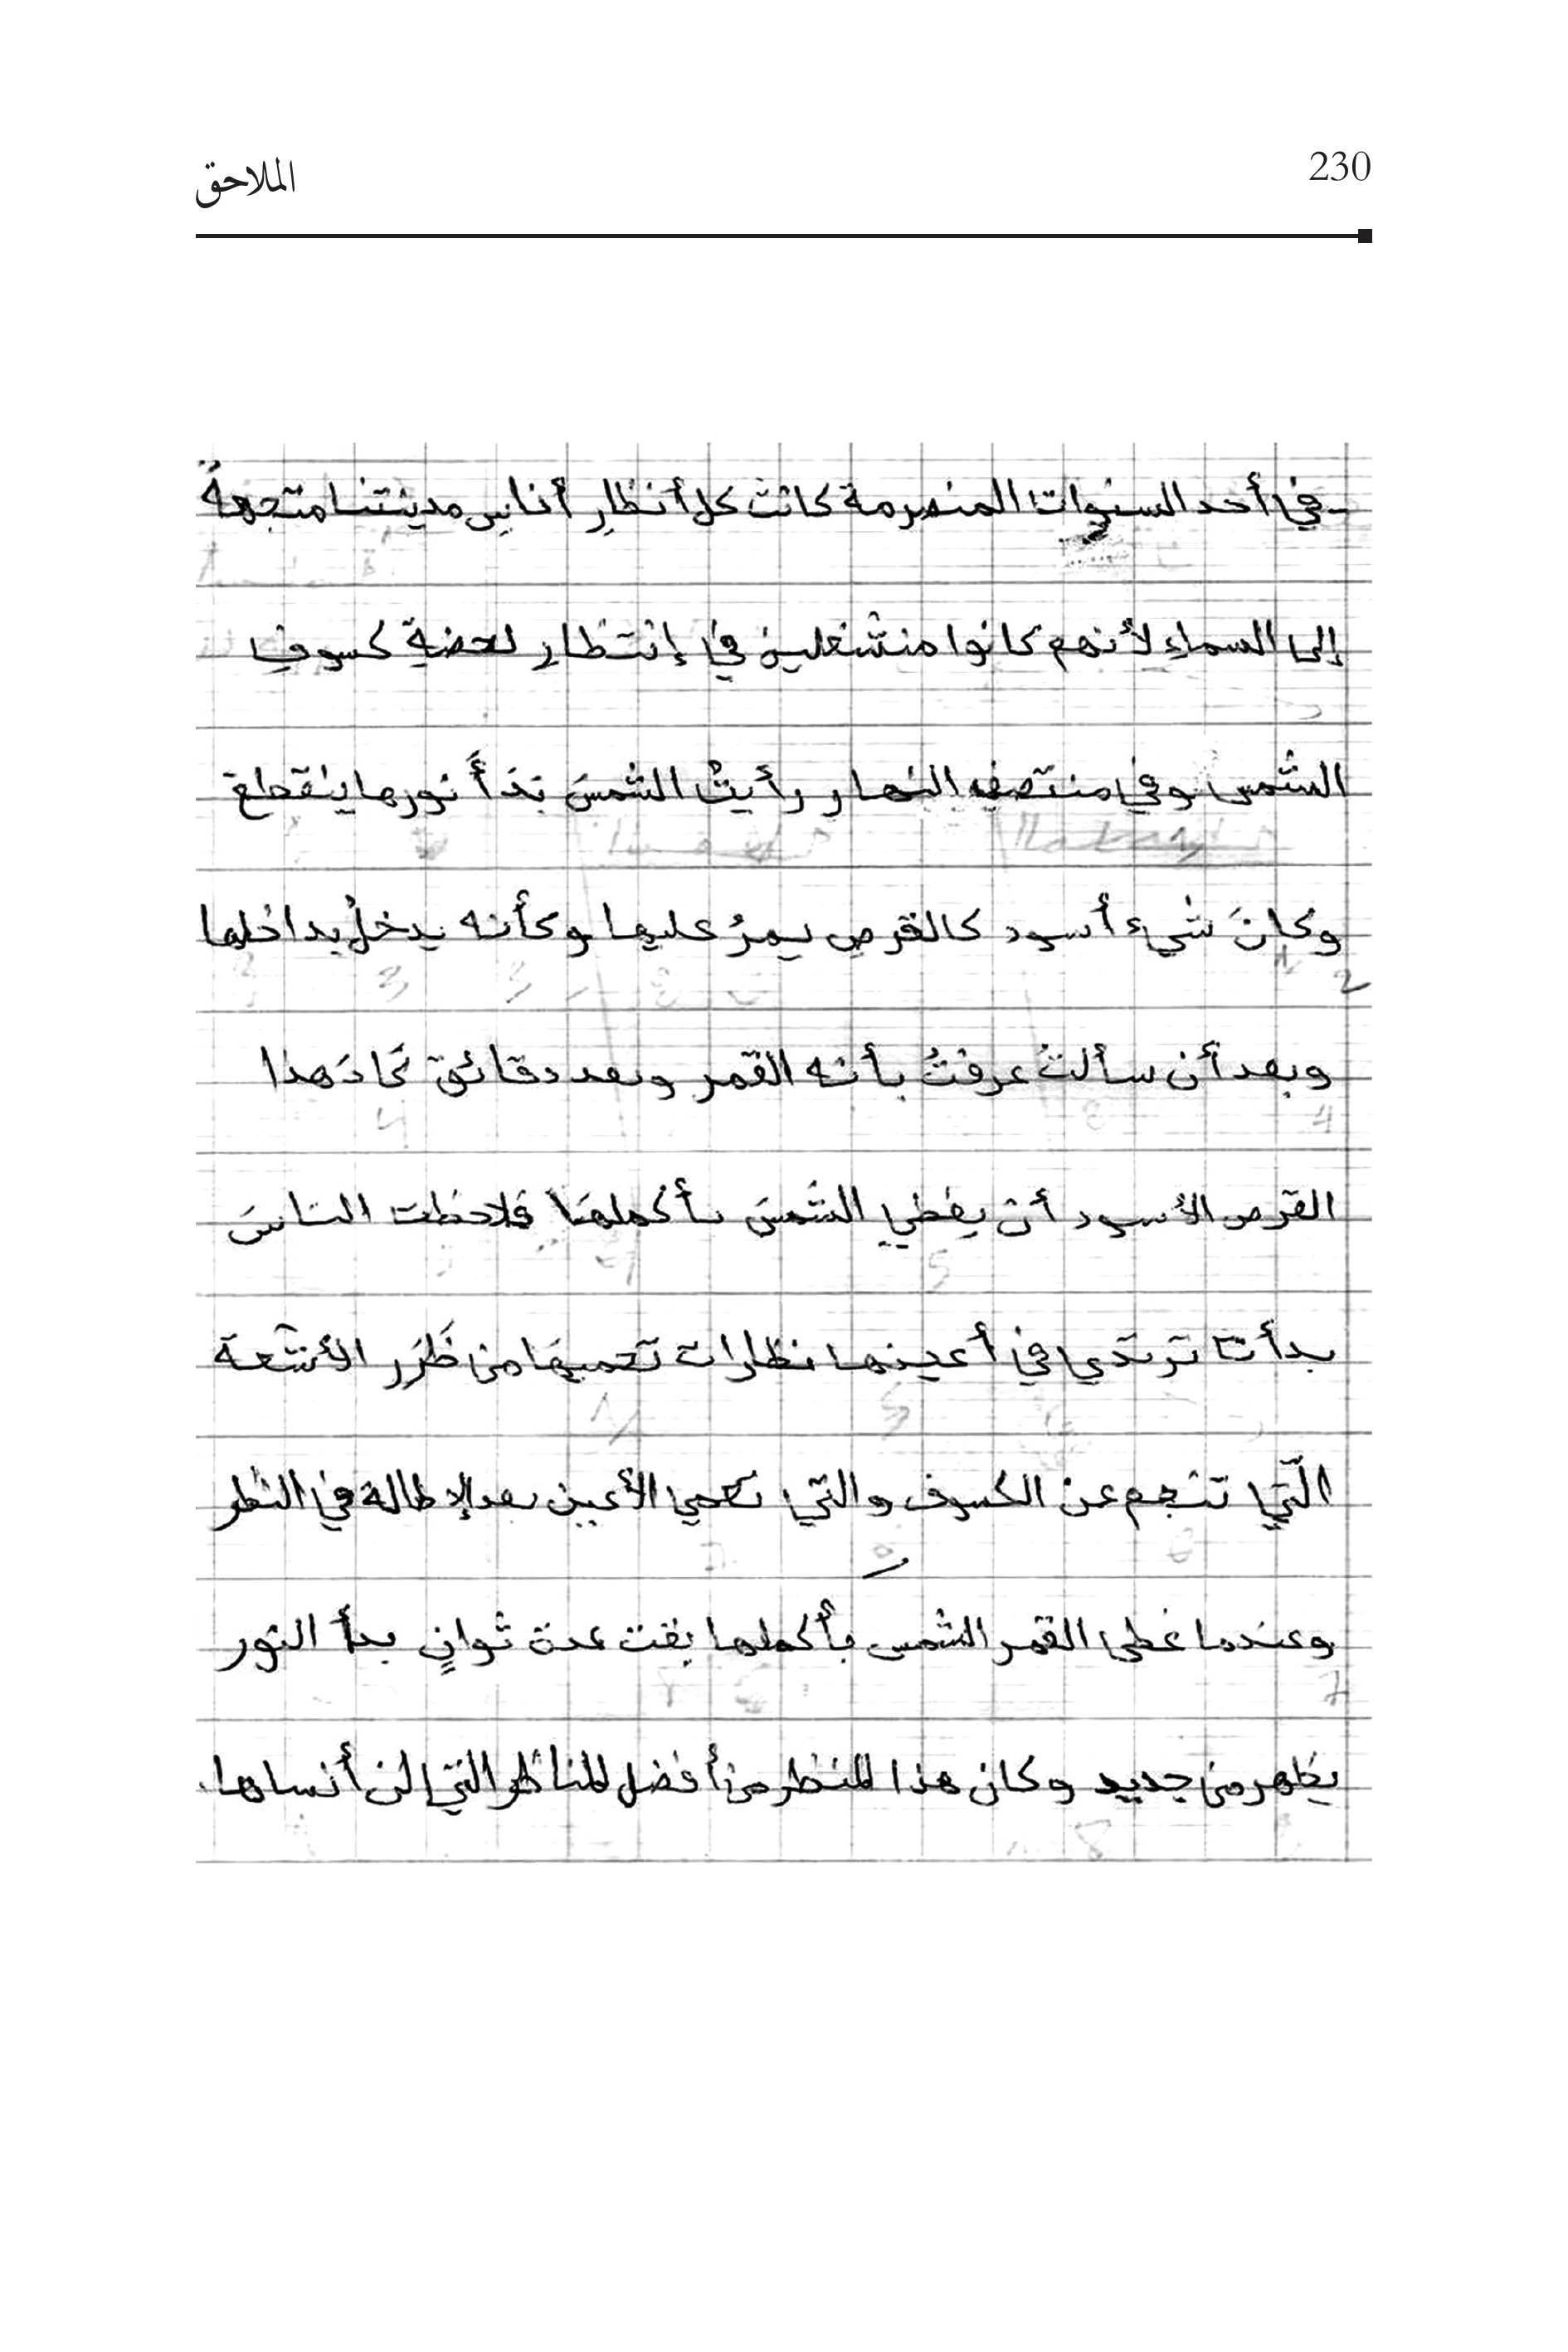 230
الملاحق
-في أحد السنوات المنصرمة كانت كل أنظارِ أناسِ مدينتنا متجهةً
إلى السماءِ لأنهم كانوا منشغلين في إنتظارِ لحضةِ كسوفِ
الشمس وفي منتصفِ النهار رأيتُ الشمسَ بَدَأَ نورها ينقطع
وكانَ شيء أسود كالقرص يمرُ عليها وكأنه يدخلُ بداخلها
وبعد أن سألتُ عرفتُ بأنه القمر وبعد دقائق كَادَ هذا
القرص الأسود أن يغطي الشمسَ بأكملهَا فلاحظت الناسَ
بدأت ترتدي في أعينها نظارات تحميهَا من ظَرَر الأشعة
الّتي تنجم عن الكسوف والتي تعمي الأعين بعد الإطالة في النظر
وعندما غطى القمر الشمس بأكملها بقت عدة ثوانٍ بدأ النور
يظهر من جديد وكان هذا المنظر من أفضل المناظر التي لن أنساها.